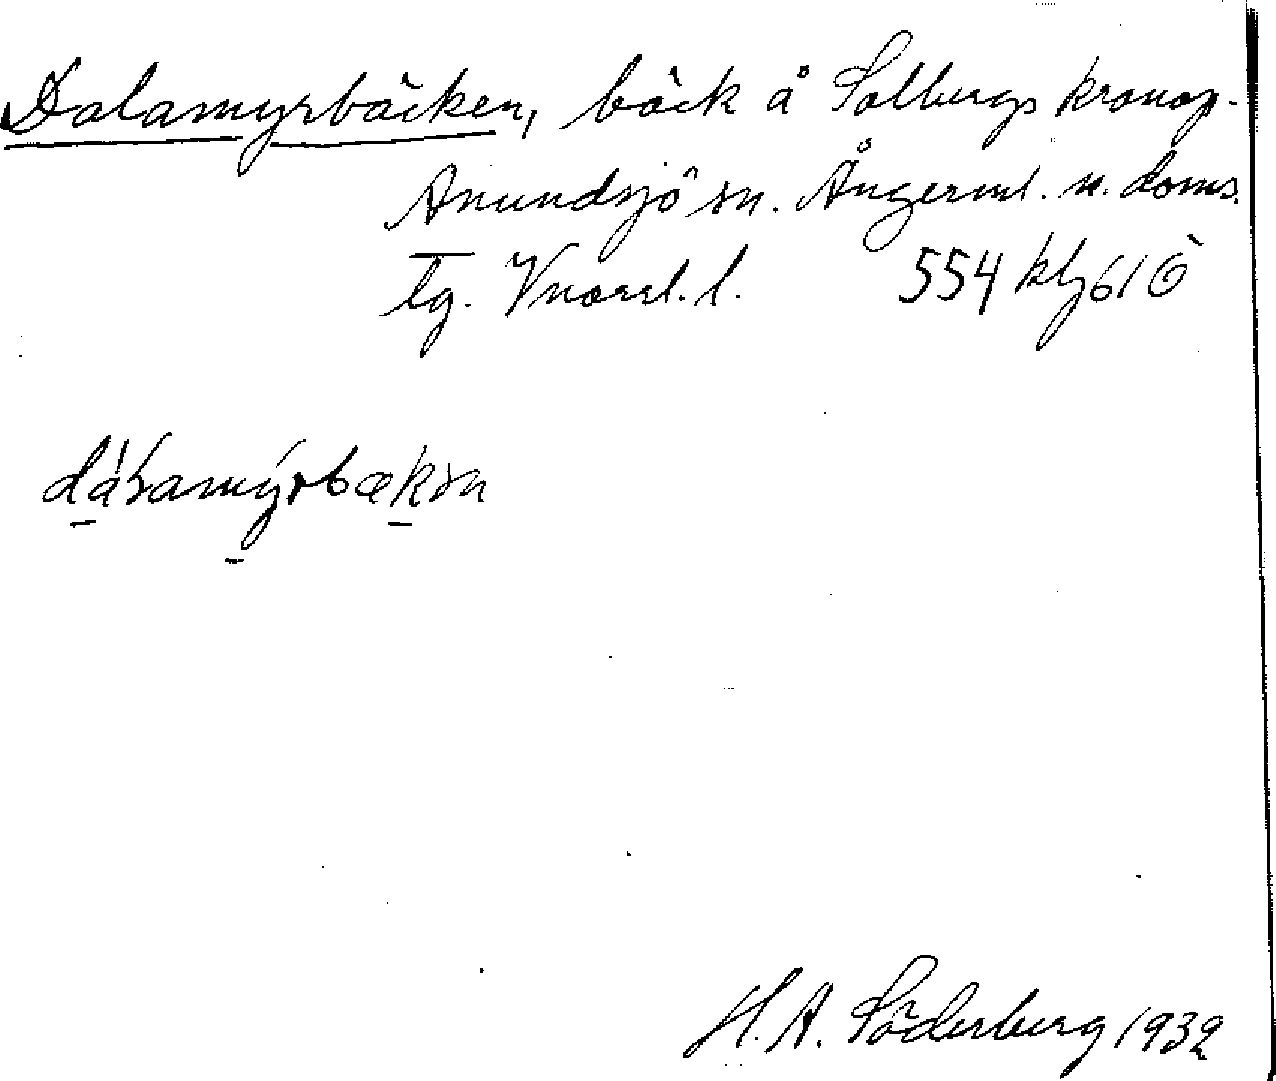 Dalamyrbäcken, bäck å Solbergs kronop.
Anundsjö sn. Ångerml. n. doms.
tg. Vnorrl. l. 554 klg 61 Ö
H. A. Söderberg 1932